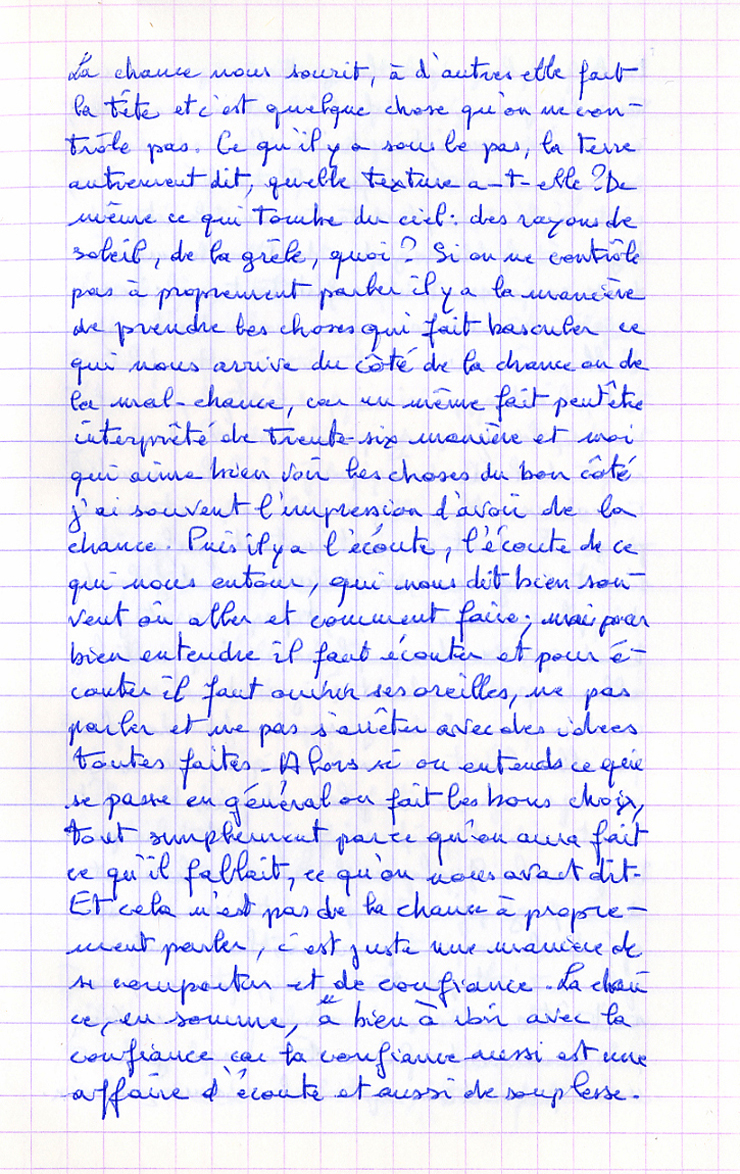 La chance nous sourit, à d'autres elle fait
la tête et c'est quelque chose qu'on ne con-
trôle pas. Ce qu'il y a sous le pas, la terre
autrement dit, quelle texture a-t-elle ? De
même ce qui tombe du ciel : des rayons de
soleil, de la grêle, quoi ? Si on ne contrôle
pas à proprement parler il y a la manière
de prendre les choses qui fait basculer ce
qui nous arrive du côté de la chance ou de
la mal-chance, car un même fait peut être
interprêté de trente-six manière et moi
qui aime bien voir les choses du bon côté
j'ai souvent l'impression d'avoir de la
chance. Puis il y a l'écoute, l'écoute de ce
qui nous entour, qui nous dit bien sou-
vent où aller et comment faire ; mais pour
bien entendre il faut écouter et pour é-
couter il faut ouvrir ses oreilles, ne pas
parler et ne pas s'arrêter avec des idées
toutes faites. Alors si on entends ce qui
se passe en général on fait les bons choix,
tout simplement parce qu'on aura fait
ce qu'il fallait, ce qu'on nous avait dit.
Et cela n'est pas de la chance à propre-
ment parler, c'est juste une manière de
se comporter et de confiance. La chan
ce, en somme, a bien à voir avec la
confiance car la confiance aussi est une
affaire d'écoute et aussi de souplesse.